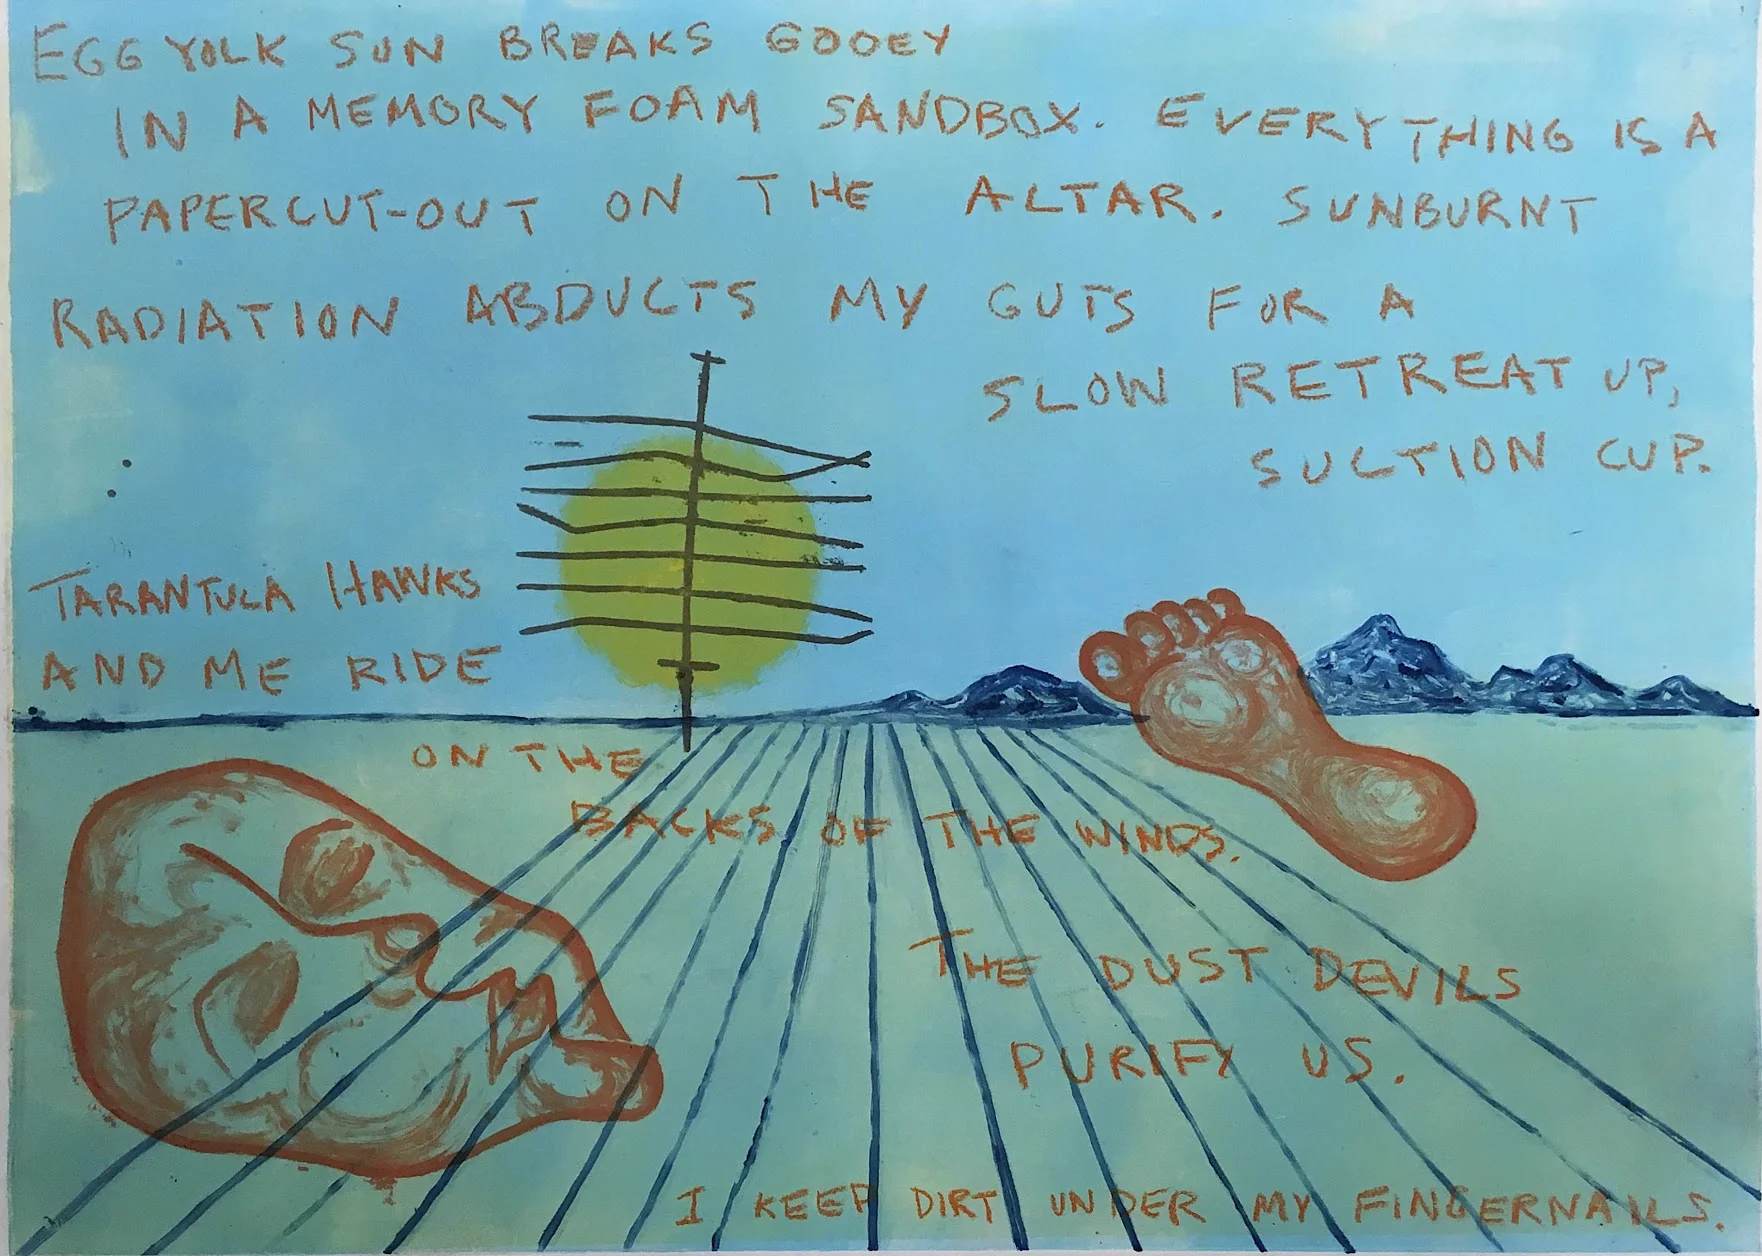 EGG YOLK SUN BREAKS GOOEY
IN A MEMORY FOAM SANDBOX. EVERYTHING IS A
PAPERCUT-OUT ON THE ALTAR. SUNBURNT
RADIATION ABDUCTS MY GUTS FOR A
SLOW RETREAT UP,
SUCTION CUP.
TARANTULA HAWKS
AND ME RIDE
ON THE
BACKS OF THE WINDS.
THE DUST DEVILS
PURIFY US.
I KEEP DIRT UNDER MY FINGERNAILS.